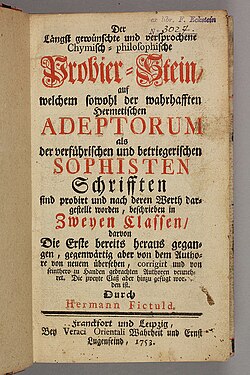 ex libr. F. Eckstein
N. 3027.
Der
Längst gewünschte und versprochene
Chymisch-philosophische
Probier-Stein,
auf
welchem sowohl der wahrhafften
Hermetischen
ADEPTORUM
als
der verführischen und betriegerischen
SOPHISTEN
Schrifften
sind probirt und nach deren Werth dar-
gestellt worden, beschrieben in
Zweyen Classen/
davon
Die Erste bereits heraus gegan-
gen, gegenwärtig aber von dem Autho-
re von neuem übersehen, corrigirt und von
seinthero zu Handen gebrachten Authoren vermeh-
ret. Die zweyte Claß aber hinzu gefügt wor-
den ist.
Durch
Hermann Fictuld.
Franckfort und Leipzig,
Bey Veraci Orientali Wahrheit und Ernst
Lugenfeind, 1753.